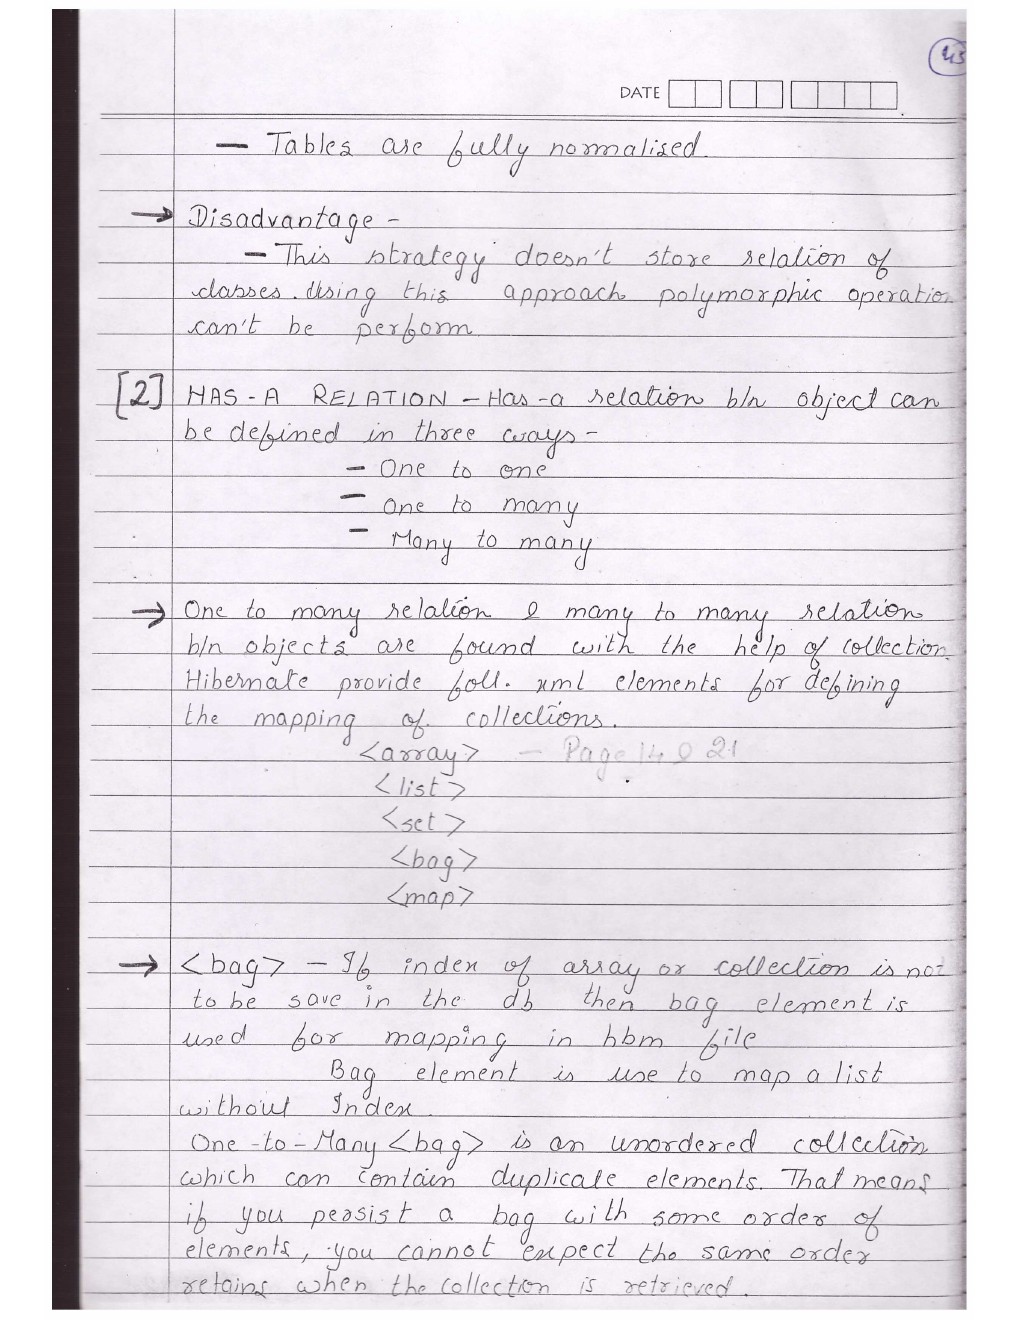 43
DATE
— Tables are fully normalised.
→ Disadvantage -
— This strategy doesn't store relation of
classes. Using this approach polymorphic operation
can't be perform
[2] HAS-A RELATION - Has-a relation b/n object can
be defined in three ways -
- One to one
- One to many
- Many to many
→ One to many relation & many to many relation
b/n objects are found with the help of collection.
Hibernate provide foll. xml elements for defining
the mapping of collections.
<array> - Page 14 & 21
<list>
<set>
<bag>
<map>
→ <bag> - If index of array or collection is not
to be save in the db then bag element is
used for mapping in hbm file
Bag element is use to map a list
without Index.
One-to-Many <bag> is an unordered collection
which can contain duplicate elements. That means
if you persist a bag with some order of
elements, you cannot expect the same order
retains when the collection is retrieved.